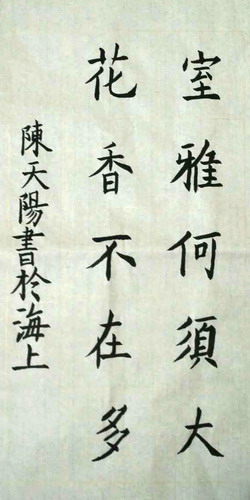 室雅何須大
花香不在多
陳天陽書於海上